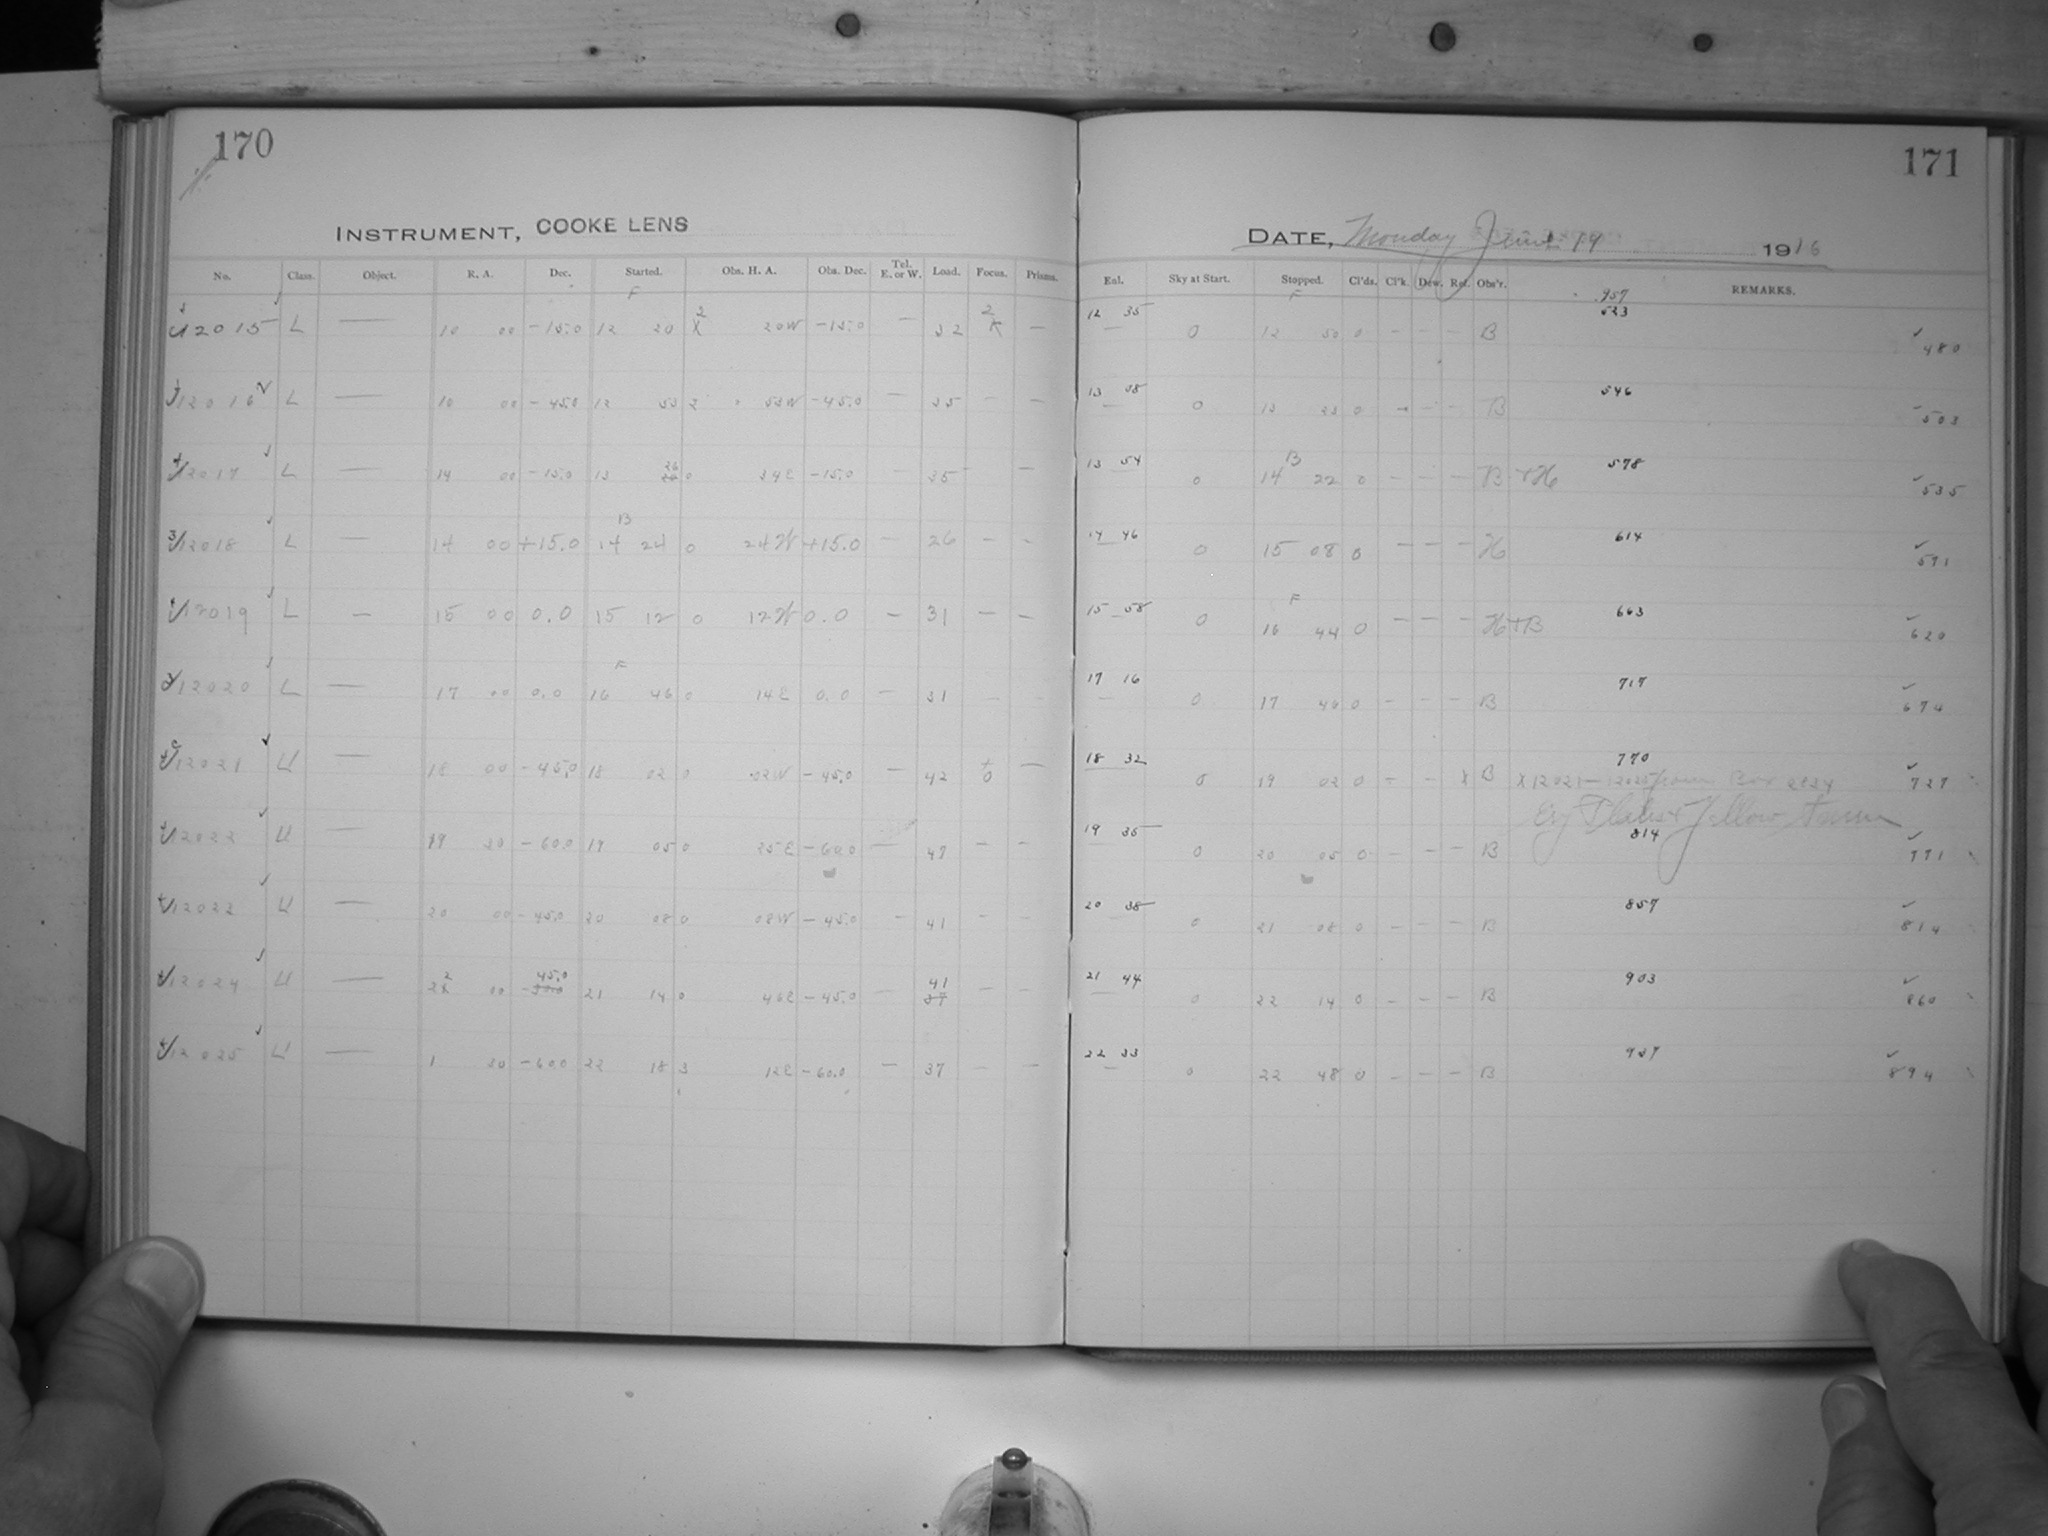 170
171
INSTRUMENT, COOKE LENS
DATE, Monday June 19 1916
No. Class. Object. R. A. Dec. Started. Obs. H. A. Obs. Dec. Tel. E. or W. Load. Focus. Prisms. Exl. Sky at Start. Stopped. Cl'ds. Cl'k. Dew. Ref. Obs'r. REMARKS.
F 2 2 F .957
12015 L — 10 00 -15.0 12 20 20W -15.0 — 32 — 12 35 0 12 50 0 — — — B 523 480
12016 L — 10 00 -45.0 12 53 2 53W -45.0 — 35 — — 13 08 0 13 23 0 — — — B 546 503
12017 L — 14 00 -15.0 13 26 0 34E -15.0 — 35 — 13 54 0 14 B 22 0 — — — B + H 578 535
B
12018 L — 14 00 +15.0 14 24 0 24W +15.0 — 26 — — 14 46 0 15 08 0 — — — H 614 571
12019 L — 15 00 0.0 15 12 0 12W 0.0 — 31 — — 15 58 0 16 F 44 0 — — — H+B 663 620
F
12020 L — 17 00 0.0 16 46 0 14E 0.0 — 31 — — 17 16 0 17 46 0 — — — B 717 674
12021 U — 18 00 -45.0 18 02 0 02W -45.0 — 42 +0 — 18 32 0 19 02 0 — — X B 770 X 12021-12025 from Box 727
Plates Yellow
12022 U — 19 30 -60.0 19 05 0 25E -60.0 — 47 — — 19 35 0 20 05 0 — — — B 814 771
12023 U — 20 00 -45.0 20 08 0 08W -45.0 — 41 — — 20 38 0 21 08 0 — — — B 857 814
12024 U — 22 00 45.0 21 14 0 46E -45.0 — 41 — — 21 44 0 22 14 0 — — — B 903 860
12025 U — 1 30 -60.0 22 18 3 12E -60.0 — 37 — — 22 33 0 22 48 0 — — — B 937 894